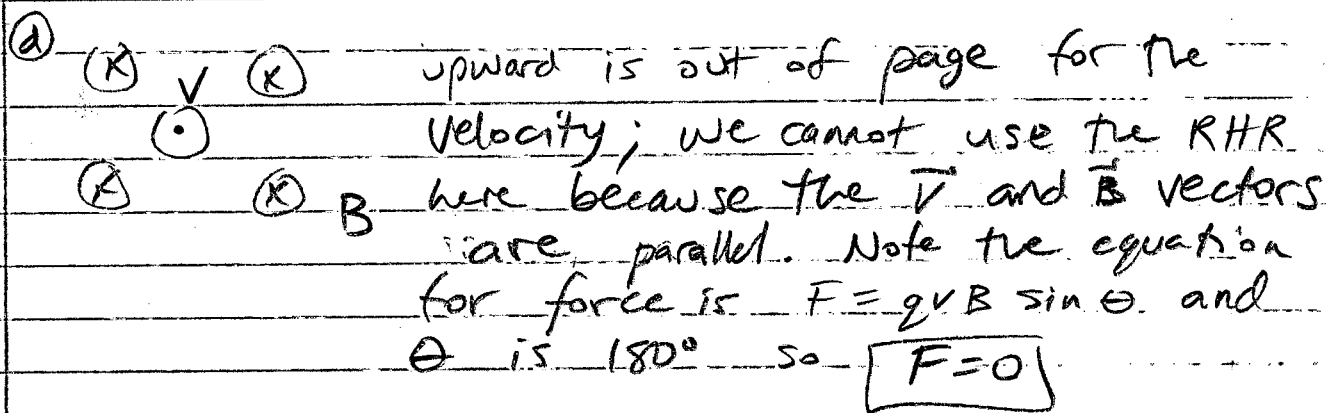 (d)
ⓧ V ⓧ upward is out of page for the
⊙ velocity; we cannot use the RHR
ⓧ ⓧ B here because the V⃗ and B⃗ vectors
are parallel. Note the equation
for force is F = qvB sin θ. and
θ is 180° so F=0